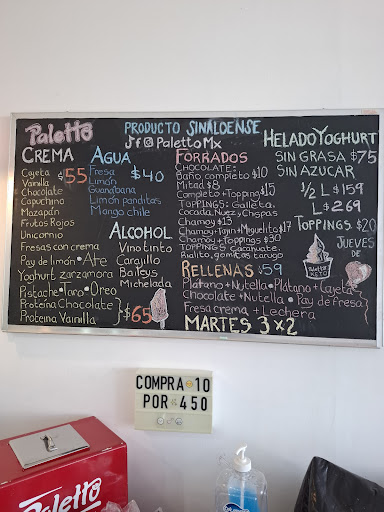 Paletto
PRODUCTO SINALOENSE
Paletto Mx
CREMA
$55
Cajeta
Vainilla
Chocolate
Capuchino
Mazapán
Frutos Rojos
Unicornio
Fresas con crema
Pay de limón • Ate
Yoghurt zarzamora
Pistache • Taro • Oreo
Proteína Chocolate
Proteína Vainilla
$65
AGUA
$40
Fresa
Limón
Guanábana
Limón panditas
Mango chile
ALCOHOL
Vino tinto
Carajillo
Baileys
Michelada
FORRADOS
CHOCOLATE:
Baño completo $10
Mitad $8
Completo + Topping $15
TOPPINGS: Galleta,
Cocada, Nuez, Chispas
Chamoy $15
Chamoy + Tajin + Miguelito $17
Chamoy + Toppings $30
TOPPINGS Cacahuate
Rialito, gomitas tarugo
RELLENAS $59
Plátano + Nutella • Plátano + Cajeta
Chocolate + Nutella • Pay de Fresa
Fresa crema + Lechera
MARTES 3x2
HELADO YOGHURT
SIN GRASA $75
SIN AZUCAR
1/2 L $159
L $269
TOPPINGS $20
JUEVES
DE
COMPRA 10
POR $450
Paletto